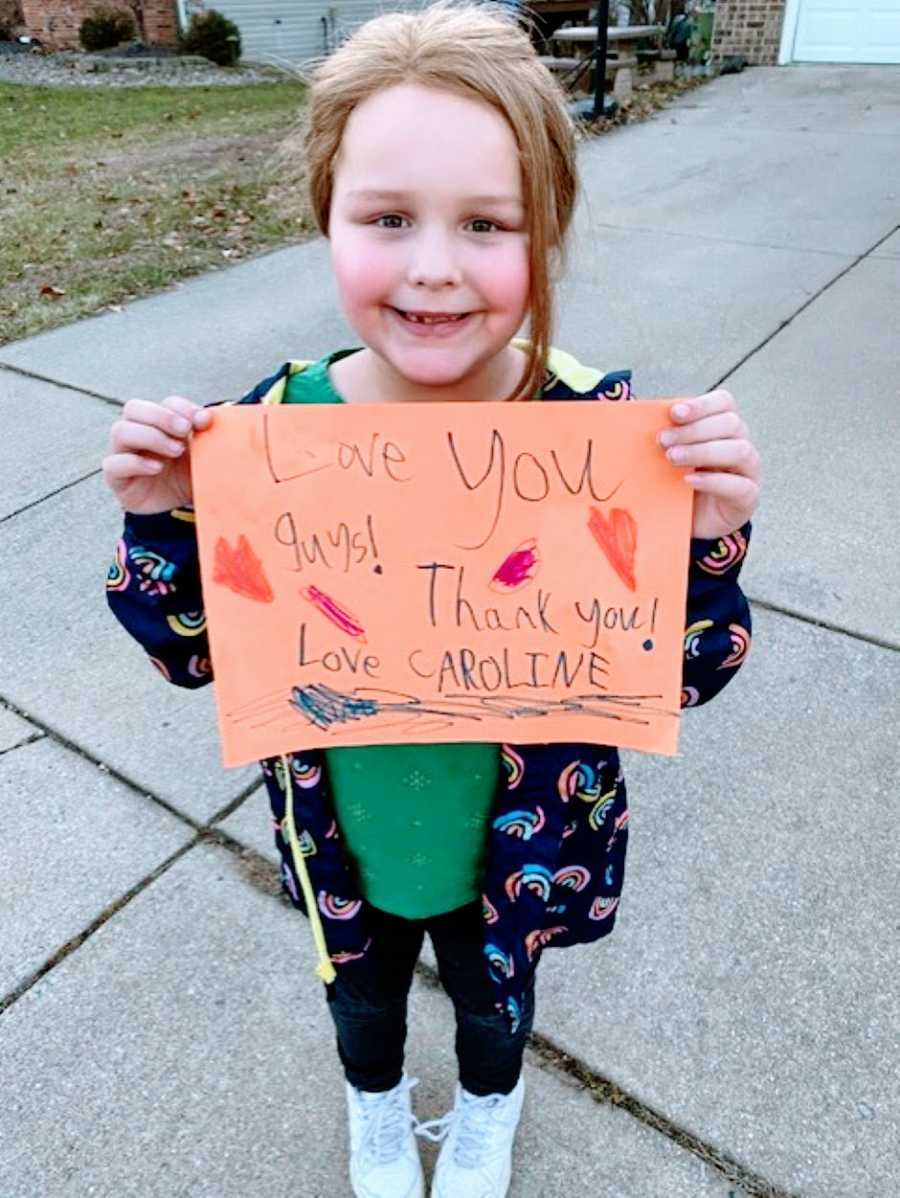 Love You
guys!
Thank you!
Love CAROLINE